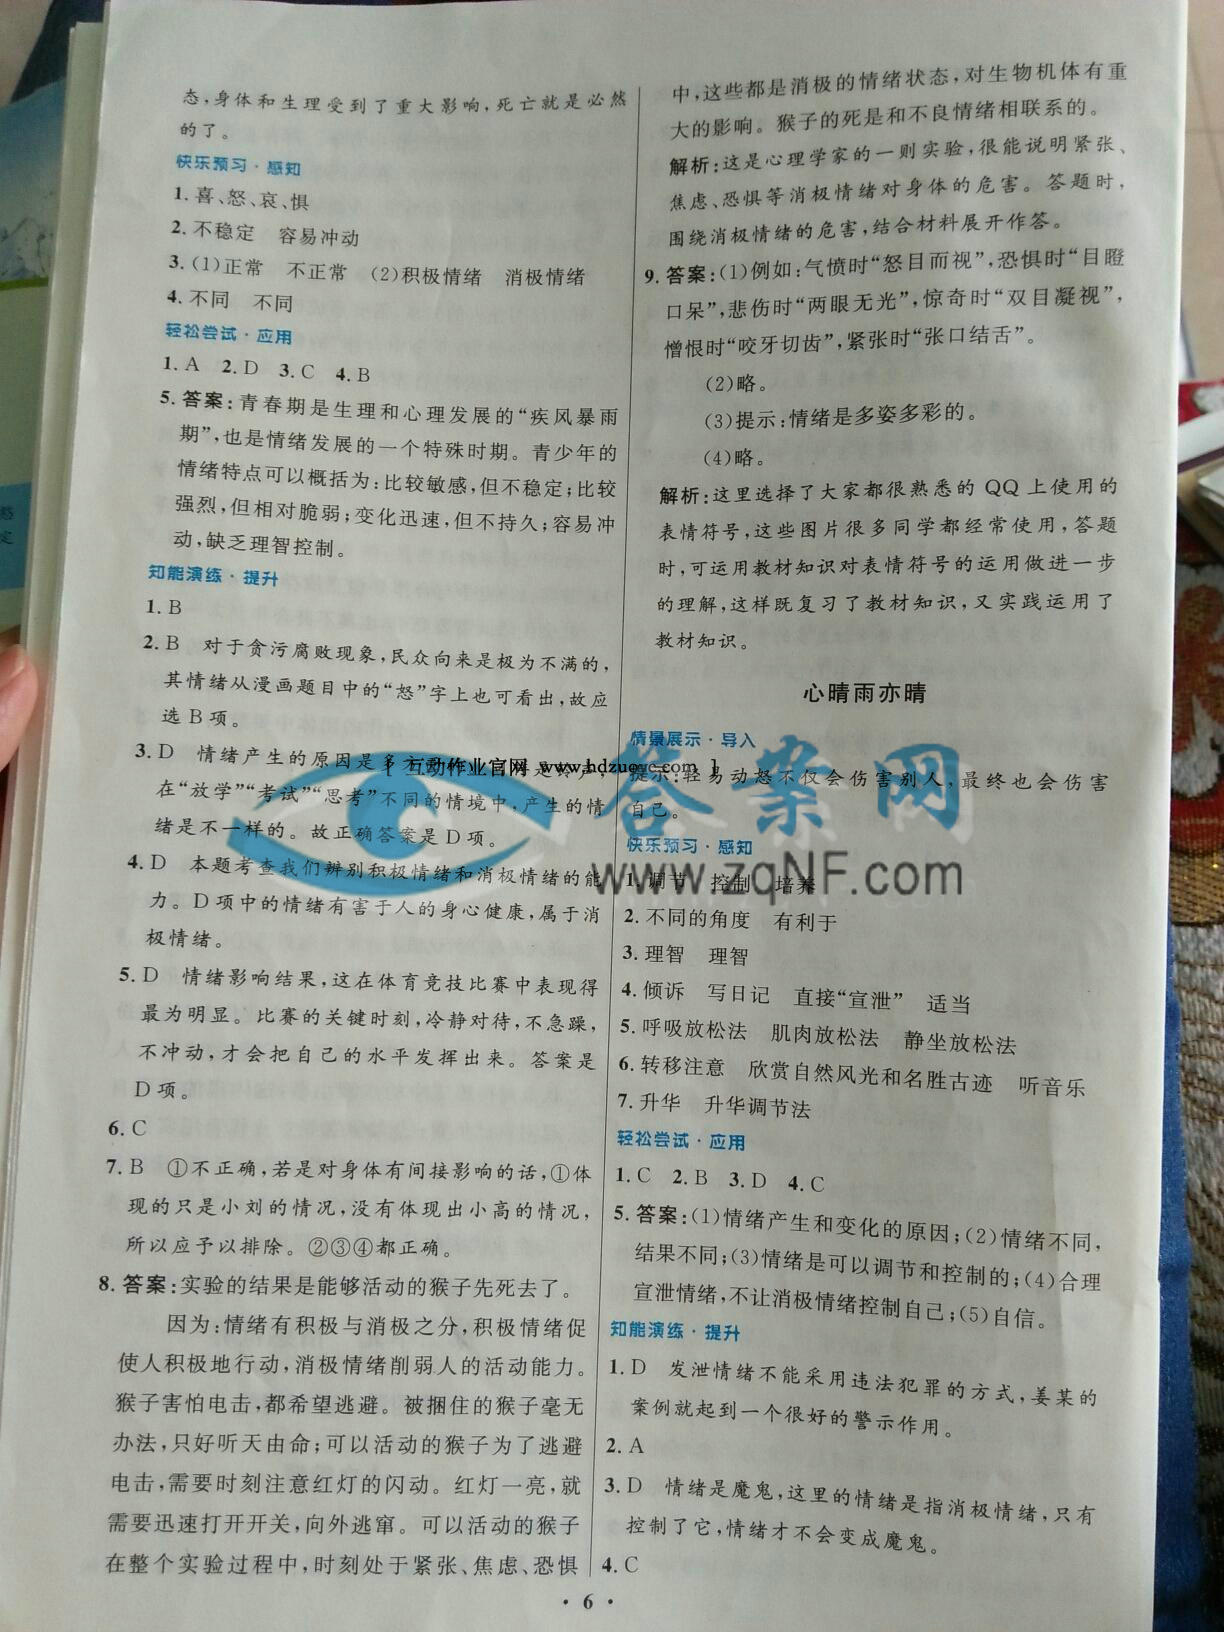 态,身体和生理受到了重大影响,死亡就是必然
的了。
快乐预习·感知
1.喜、怒、哀、惧
2.不稳定 容易冲动
3.(1)正常 不正常 (2)积极情绪 消极情绪
4.不同 不同
轻松尝试·应用
1.A 2.D 3.C 4.B
5.答案:青春期是生理和心理发展的“疾风暴雨
期”,也是情绪发展的一个特殊时期。青少年的
情绪特点可以概括为:比较敏感,但不稳定;比较
强烈,但相对脆弱;变化迅速,但不持久;容易冲
动,缺乏理智控制。
知能演练·提升
1.B
2.B 对于贪污腐败现象,民众向来是极为不满的,
其情绪从漫画题目中的“怒”字上也可看出,故应
选B项。
3.D 情绪产生的原因是多
在“放学”“考试”“思考”不同的情境中,产生的情
绪是不一样的。故正确答案是D项。
4.D 本题考查我们辨别积极情绪和消极情绪的能
力。D项中的情绪有害于人的身心健康,属于消
极情绪。
5.D 情绪影响结果,这在体育竞技比赛中表现得
最为明显。比赛的关键时刻,冷静对待,不急躁,
不冲动,才会把自己的水平发挥出来。答案是
D项。
6.C
7.B ①不正确,若是对身体有间接影响的话,①体
现的只是小刘的情况,没有体现出小高的情况,
所以应予以排除。②③④都正确。
8.答案:实验的结果是能够活动的猴子先死去了。
因为:情绪有积极与消极之分,积极情绪促
使人积极地行动,消极情绪削弱人的活动能力。
猴子害怕电击,都希望逃避。被捆住的猴子毫无
办法,只好听天由命;可以活动的猴子为了逃避
电击,需要时刻注意红灯的闪动。红灯一亮,就
需要迅速打开开关,向外逃窜。可以活动的猴子
在整个实验过程中,时刻处于紧张、焦虑、恐惧
中,这些都是消极的情绪状态,对生物机体有重
大的影响。猴子的死是和不良情绪相联系的。
解析:这是心理学家的一则实验,很能说明紧张、
焦虑、恐惧等消极情绪对身体的危害。答题时,
围绕消极情绪的危害,结合材料展开作答。
9.答案:(1)例如:气愤时“怒目而视”,恐惧时“目瞪
口呆”,悲伤时“两眼无光”,惊奇时“双目凝视”,
憎恨时“咬牙切齿”,紧张时“张口结舌”。
(2)略。
(3)提示:情绪是多姿多彩的。
(4)略。
解析:这里选择了大家都很熟悉的QQ上使用的
表情符号,这些图片很多同学都经常使用,答题
时,可运用教材知识对表情符号的运用做进一步
的理解,这样既复习了教材知识,又实践运用了
教材知识。
心晴雨亦晴
情景展示·导入
提示:轻易动怒不仅会伤害别人,最终也会伤害
自己。
快乐预习·感知
1.调节 控制 培养
2.不同的角度 有利于
3.理智 理智
4.倾诉 写日记 直接“宣泄” 适当
5.呼吸放松法 肌肉放松法 静坐放松法
6.转移注意 欣赏自然风光和名胜古迹 听音乐
7.升华 升华调节法
轻松尝试·应用
1.C 2.B 3.D 4.C
5.答案:(1)情绪产生和变化的原因;(2)情绪不同,
结果不同;(3)情绪是可以调节和控制的;(4)合理
宣泄情绪,不让消极情绪控制自己;(5)自信。
知能演练·提升
1.D 发泄情绪不能采用违法犯罪的方式,姜某的
案例就起到一个很好的警示作用。
2.A
3.D 情绪是魔鬼,这里的情绪是指消极情绪,只有
控制了它,情绪才不会变成魔鬼。
4.C
·6·
[ 互动作业官网 www.hdzuoye.com ]
答案网
www.zqNF.com